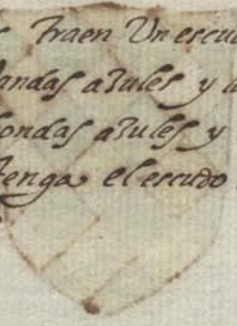 traen Vn escu
andas aZules y
ondas aZules y
tenga el escudo